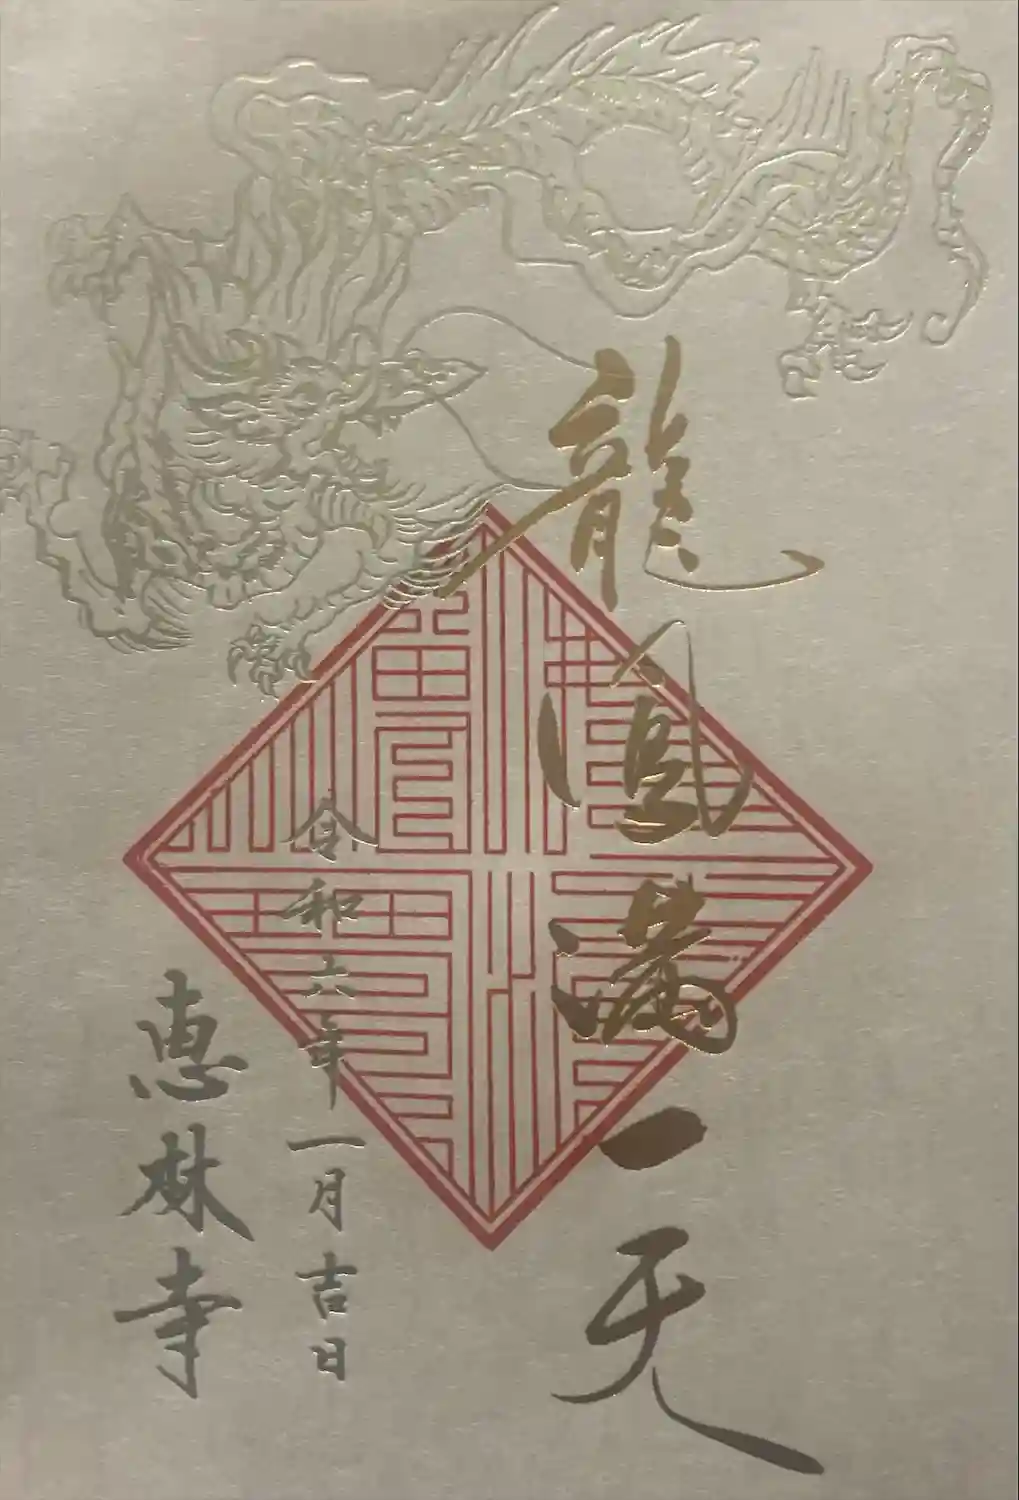 龍鳳満一天
令和六年一月吉日
恵林寺